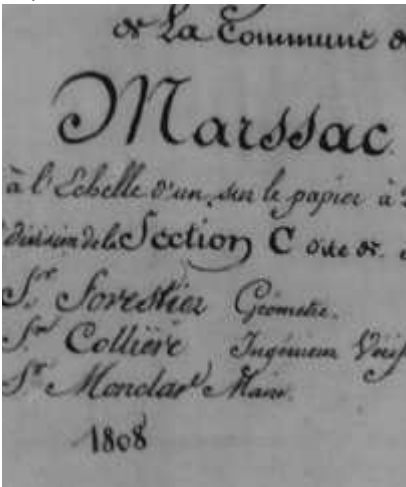 de La Commune d
Marssac
à l'Echelle d'un sur le papier à
division de la Section C dite de
Sr. Forestier Géometre.
Sr. Collière Ingénieur Vérif
Sr. Monclar Maire.
1808